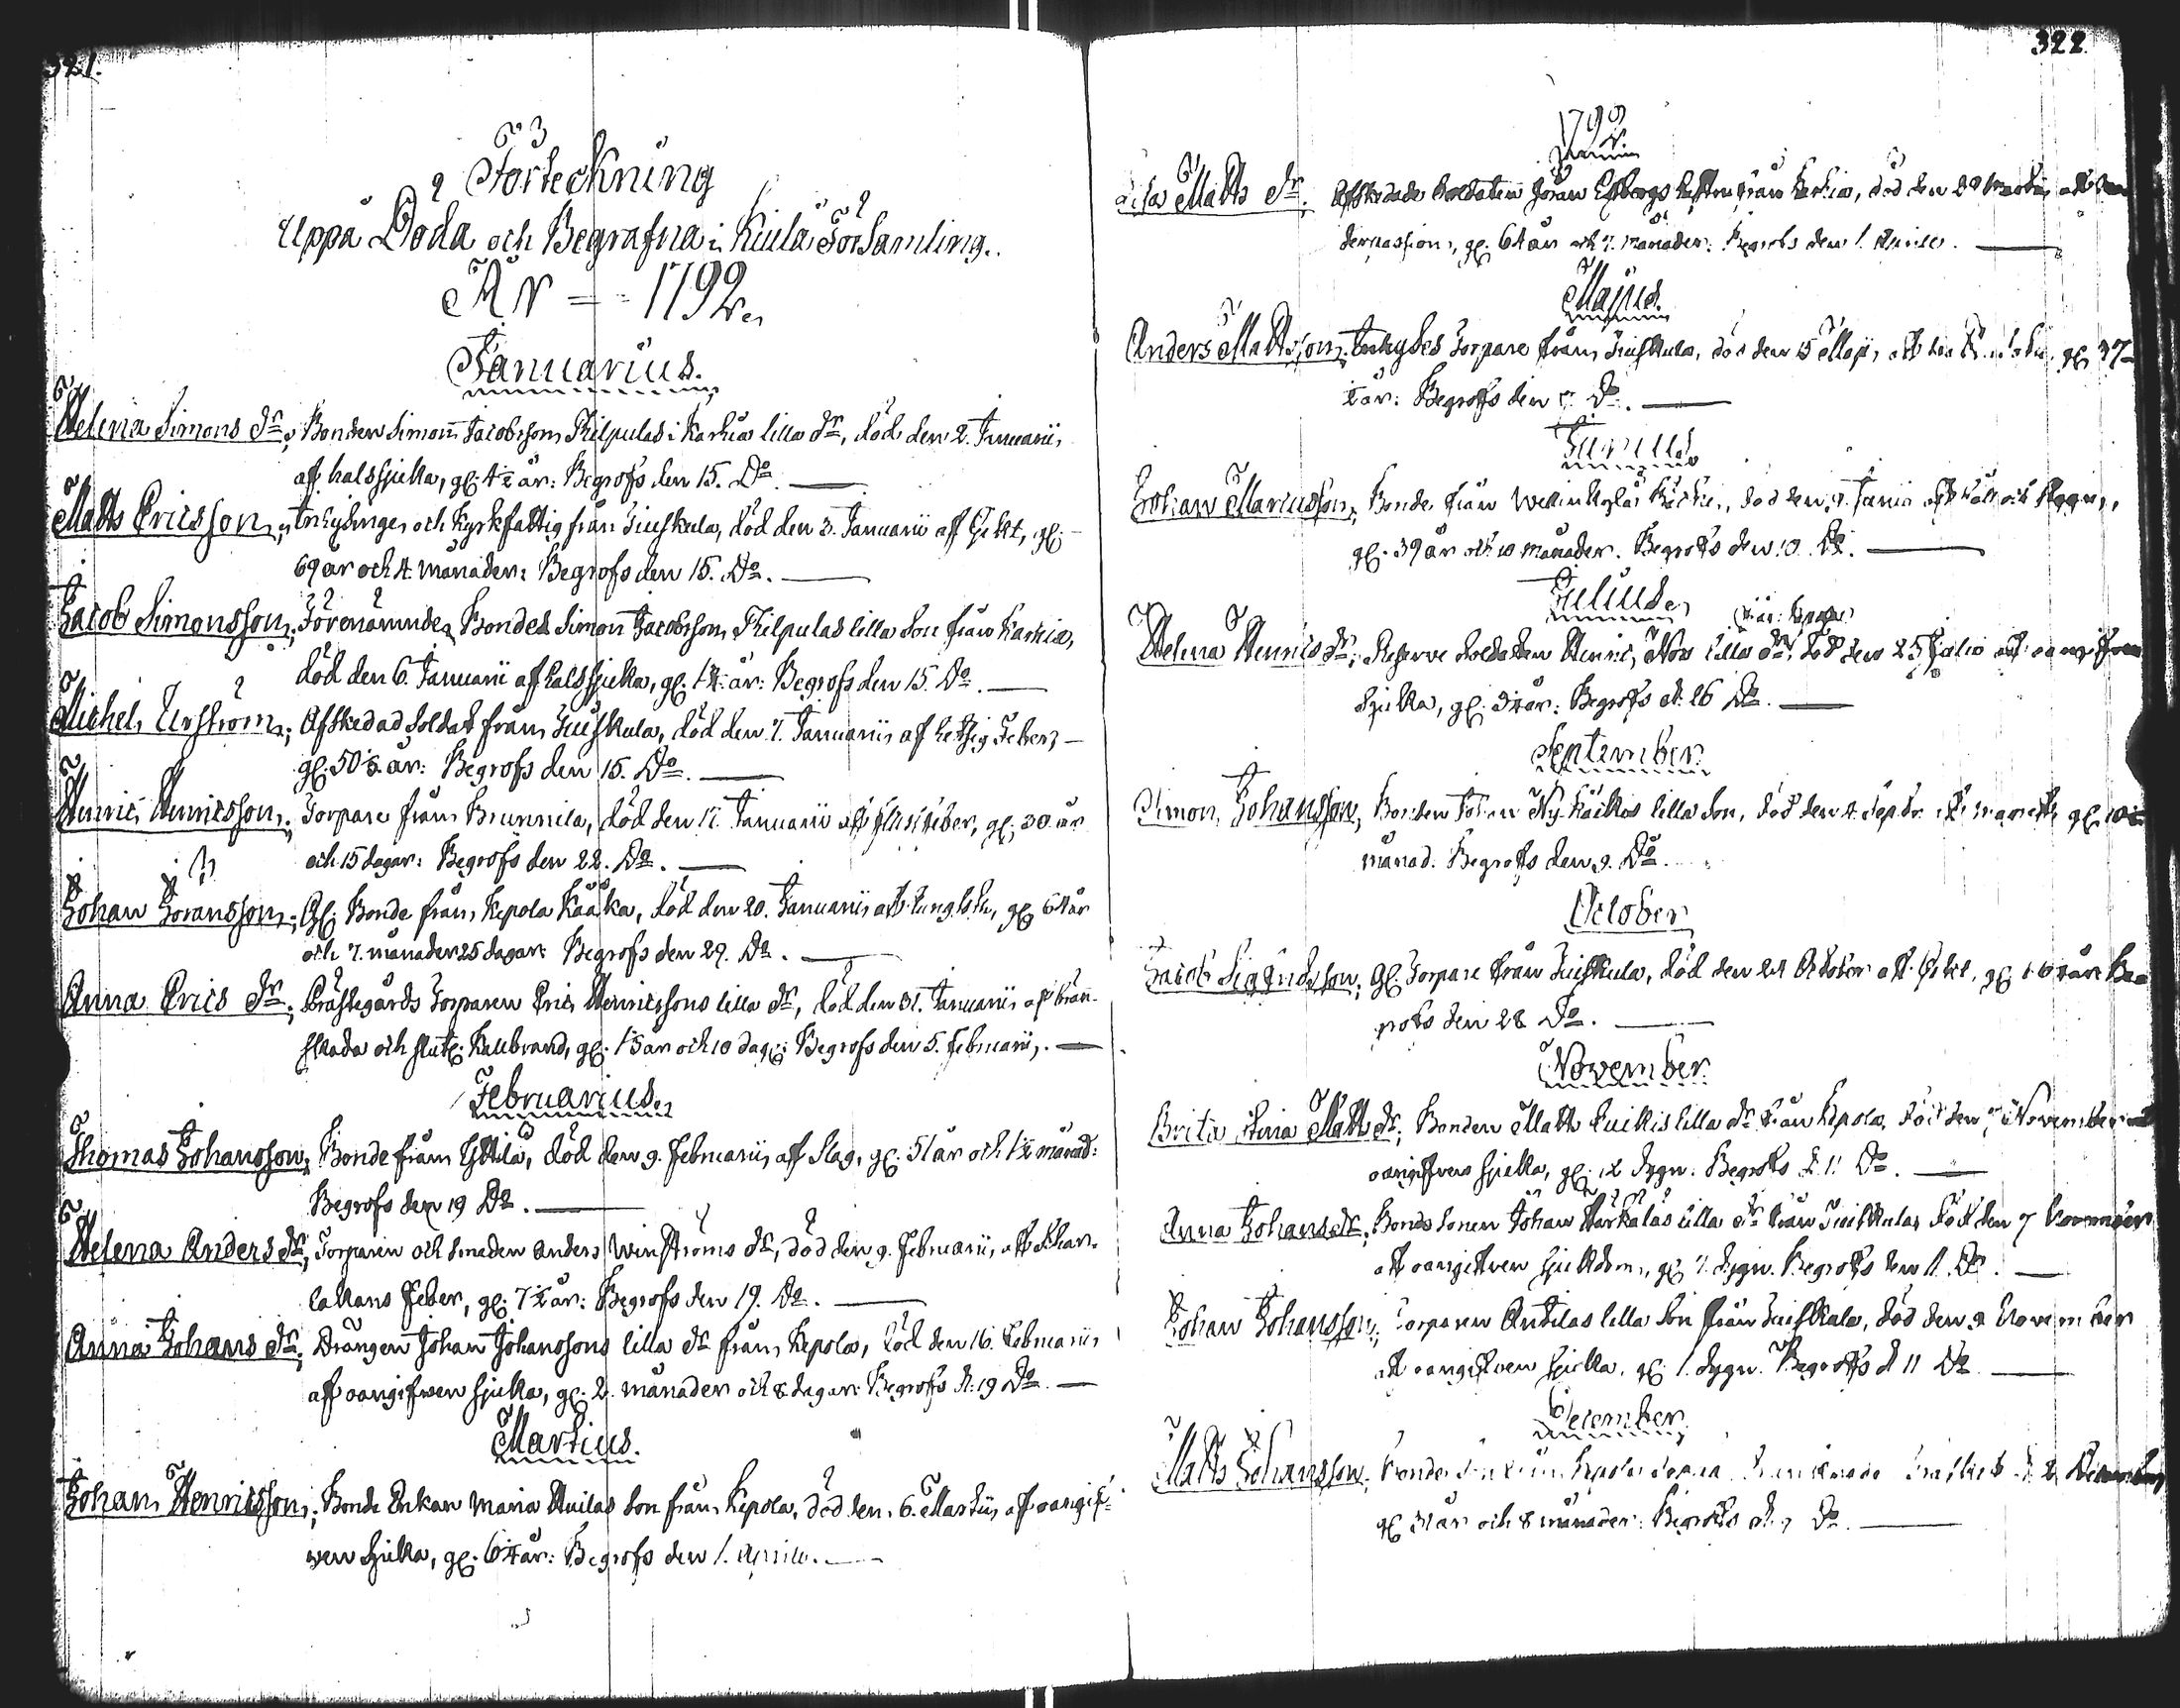 321.
Förteckning
Uppå Döda och Begrafna i Kiula Församling.
År = 1792.
Januarius.
Helena Simons dr; Bonden Simon Jacobsson Thilpulas i Karhia lilla dr, död den 2. Januarii,
af halssjuka, gl: 4½ år: Begrofs den 15. Do.
Matts Ericsson; Inhysinge och Kyrkfattig från Juihkula, död den 3. Januarii af Gikt, gl:
69 år och 4. månader: Begrofs den 15. Do.
Jacob Simonsson; Förenämnde Bondes Simon Jacobsson Thilpulas lilla Son från Karhia,
död den 6. Januarii af halssjuka, gl: 1¼ år: Begrofs den 15. Do.
Michel Urström; Afskedad Soldat från Juihkula, död den 7. Januarii, af hetsig Feber,
gl: 50½ år: Begrofs den 15. Do.
Henric Henricsson; Torpare från Brunnila, död den 17. Januarii af feber, gl: 30 år
och 15 dagar: Begrofs den 22. Do.
Johan Göransson; Gl: Bonde från Kepola Kaaka, död den 20. Januarii af lungsot, gl: 64 år
och 7. månader 25 dagar: Begrofs den 29. Do.
Anna Erics dr; Prästegårds Torparen Eric Henricssons lilla dr, död den 31. Januarii, af brän-
skada och slutl: Kallbrand, gl: år och 10 dag: Begrofs den 5. Februarii.
Februarius.
Thomas Johansson; Bonde från Yttilä, död den 9. Februarii, af Slag, gl: 51 år och 1½ månad:
Begrofs den 19 Do.
Helena Anders dr; Torparen och Smeden Anders Winströms dr, död den 9. Februarii, af Schar-
lakans Feber, gl: 7½ år: Begrofs den 19. Do.
Anna Johans dr; Drängen Johan Johanssons lilla dr från Kepola, död den 16. Februarii,
af oangifwen sjuka, gl: 2. månader och 8 dagar: Begrofs d. 19 Do.
Martius.
Johan Henricsson; Bonde Enkan Maria Huilas Son från Kepola, död den 6. Martii, af oangif-
wen sjuka, gl: 6¼ år: Begrofs den 1. Aprilis.
322.
1792
Matts dr; Afskedade Soldaten Jöran Hustru från Karhia, död den Martii, af
derpassion, gl: 64 år och 7. månader: Begrofs den 1. Aprilis.
Majus.
Anders Mattsson; Inhyses Torpare från Juihkula, död den 15 Maji, af gl: 37
½ år: Begrofs den Do.
Junius
Johan Marcusson; Bonde från död den Junii af Håll och Stygn,
gl: 39 år och 10 månader. Begrofs den 10. Do.
Julius
Helena Henrics dr; Reserve Soldaten Henric lilla dr, död den 25 Julii af oangifwen
sjuka, gl: år: Begrofs d. 26 Do.
September.
Simon Johansson; Bonden Johan Ny-Käikös lilla Son, död den 4. Septbr af gl:
månad. Begrofs den 9. Do.
October
Jacob Sigfridsson; Gl: Torpare från Juihkula, död den 21 October af Gikt, gl: år: Be-
grofs den 28 Do.
November.
Brita Stina Matts dr; Bonden Matts lilla dr från Kepola, död den November af
oangifwen sjuka, gl: dygn: Begrofs d. 11 Do.
Anna Johans dr; Bonds Sonen Johan Härkäläs lilla dr från Juihkula, död den 7 November
af oangifwen sjukdom, gl: dygn. Begrofs den 11 Do.
Johan Johansson; Torparen Antilas lilla Son från Juihkula, död den 9 November
af oangifwen sjuka, gl: 1. dygn. Begrofs d 11 Do.
December.
Matts Johansson; från Kepola December
gl: 31 år och 8 månader: Begrofs Do.